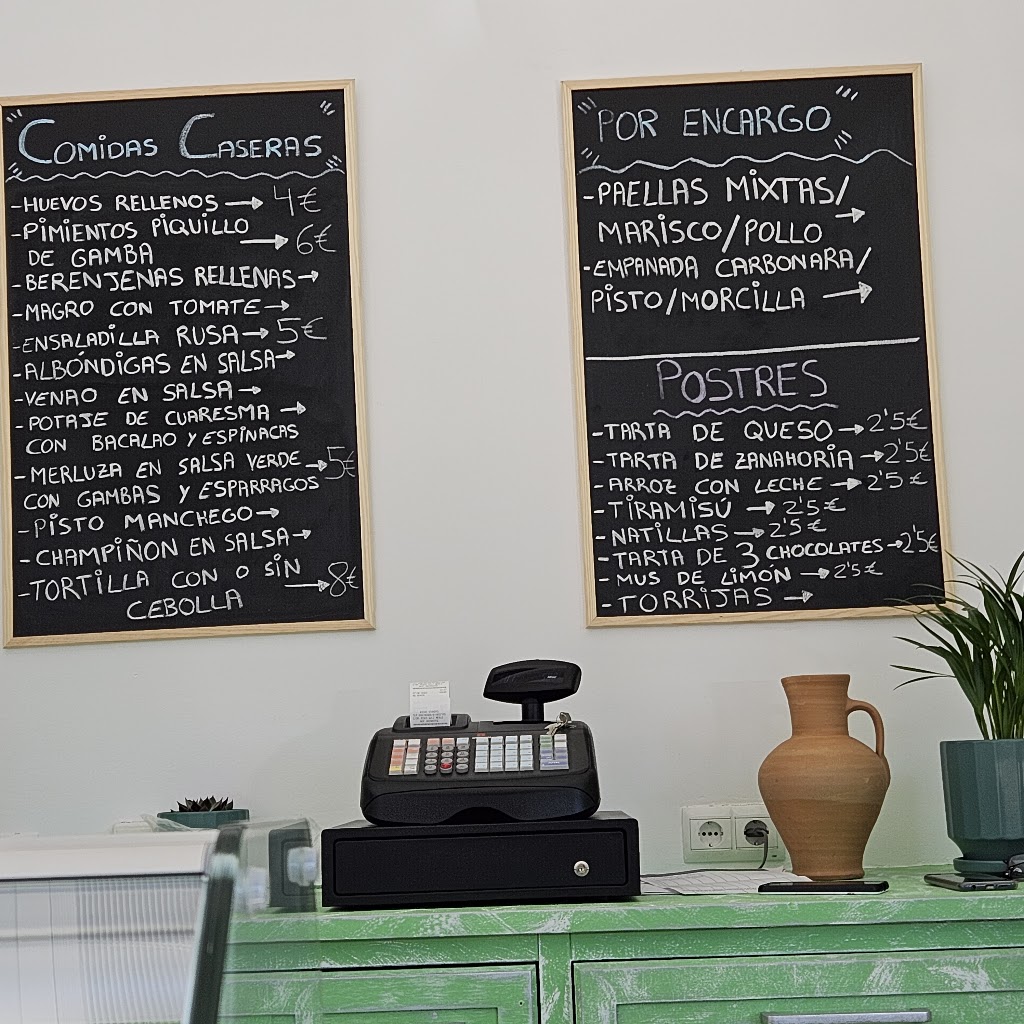 COMIDAS CASERAS
-HUEVOS RELLENOS → 4€
-PIMIENTOS PIQUILLO
DE GAMBA → 6€
-BERENJENAS RELLENAS→
-MAGRO CON TOMATE→
-ENSALADILLA RUSA→ 5€
-ALBÓNDIGAS EN SALSA→
-VENAO EN SALSA→
-POTAJE DE CUARESMA →
CON BACALAO Y ESPINACAS
-MERLUZA EN SALSA VERDE → 5€
CON GAMBAS Y ESPARRAGOS
-PISTO MANCHEGO→
-CHAMPIÑON EN SALSA→
-TORTILLA CON O SIN → 8€
CEBOLLA
POR ENCARGO
-PAELLAS MIXTAS/
MARISCO/POLLO →
-EMPANADA CARBONARA/
PISTO/MORCILLA →
POSTRES
-TARTA DE QUESO→2'5€
-TARTA DE ZANAHORIA →2'5€
-ARROZ CON LECHE → 2'5€
-TIRAMISÚ → 2'5€
-NATILLAS→ 2'5€
-TARTA DE 3 CHOCOLATES→2'5€
-MUS DE LIMÓN → 2'5€
-TORRIJAS →